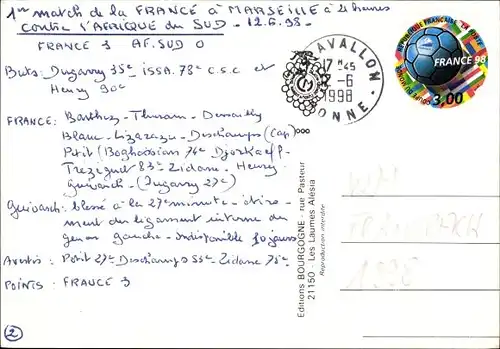 1er match de la FRANCE à MARSEILLE à 21 heures
contre l'AFRIQUE du SUD - 12.6.98 -
FRANCE 3 AF. SUD 0
Buts: Dugarry 35e ISSA. 78e C.S.C et
Henry 90e
FRANCE: Barthez - Thuram - Desailly
Blanc - Lizarazu - Deschamps (Cap)
Petit (Boghossian 74e Djorkaeff -
Trezeguet 83e Zidane - Henry -
Guivarch - (Dugarry 27e)
Guivarch: blessé à la 27e minute - étire-
ment du ligament interne du
genou gauche - indisponible 10 jours
Avertis: Petit 27e Deschamps 55e Zidane 75e
POINTS: FRANCE 3
2
AVALLON
17H45
-6
1998
YONNE
REPUBLIQUE FRANCAISE LA POSTE
FRANCE 98
3,00
Editions BOURGOGNE - rue Pasteur
21150 - Les Laumes Alésia
Reproduction interdite
1998